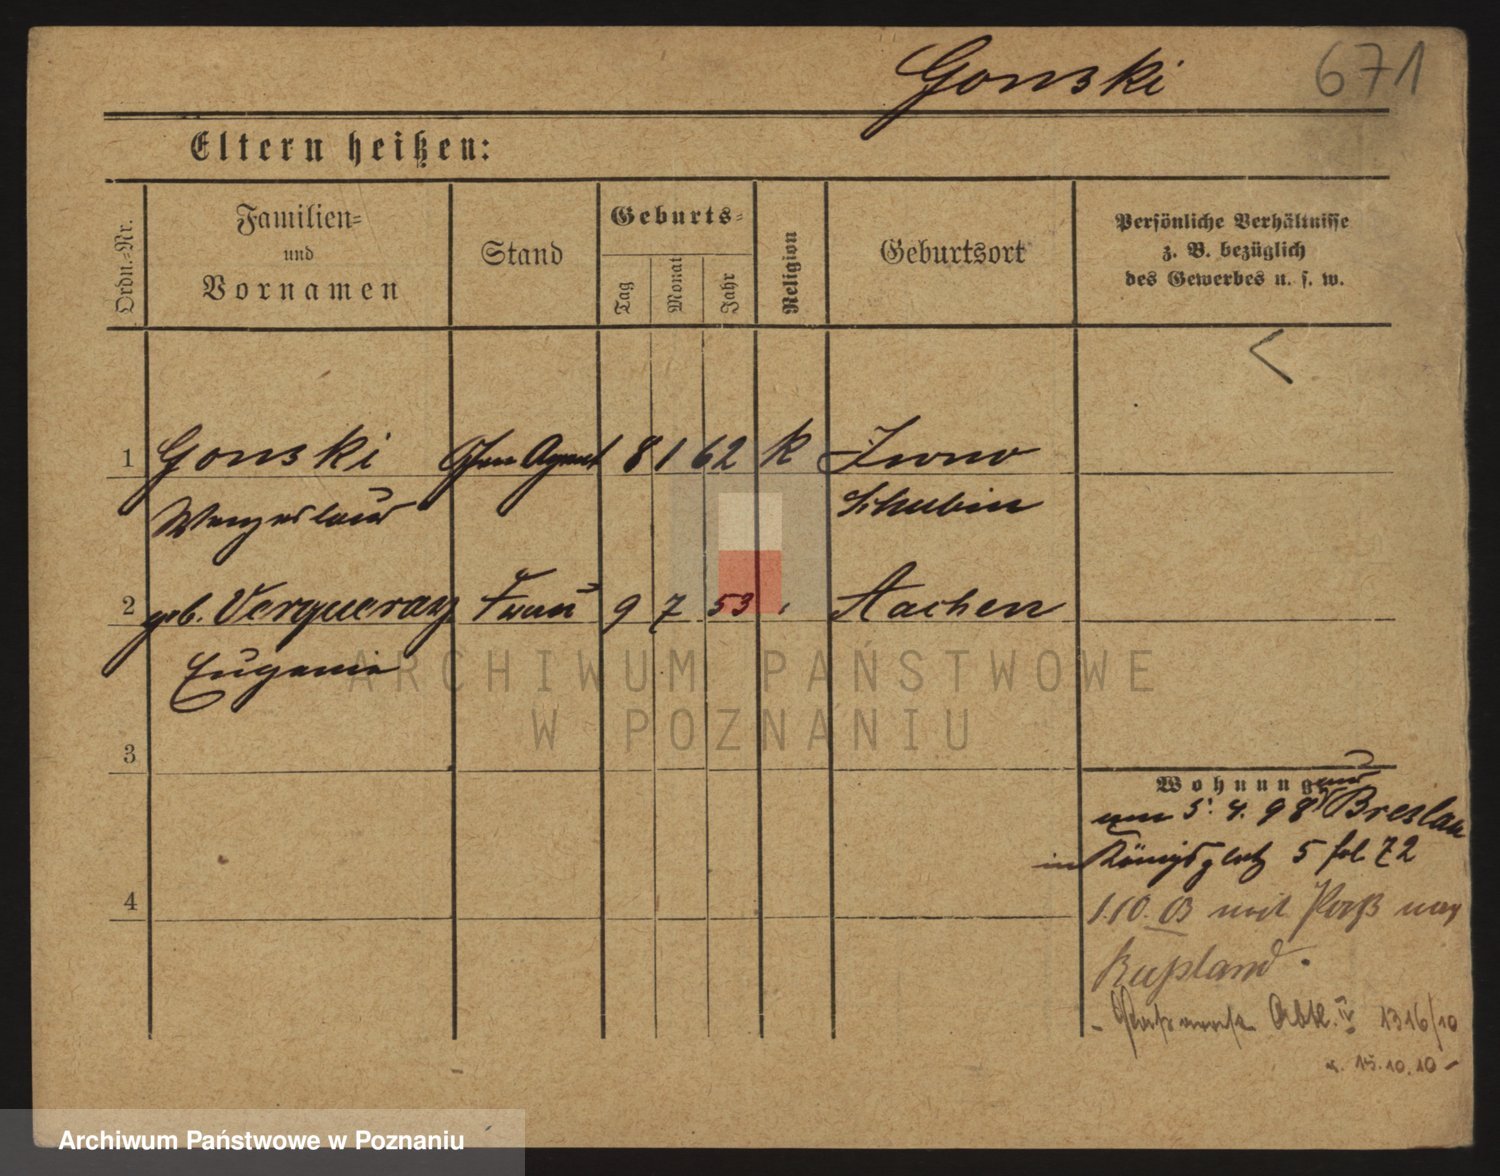 Gonski 671
Eltern heißen:
Ordn.-Nr.
Familien-
und
Vornamen
Stand
Geburts-
Tag
Monat
Jahr
Religion
Geburtsort
Persönliche Verhältnisse
z. B. bezüglich
des Gewerbes u. s. w.
1 Gonski Agent 8 1 62 k
Wenzeslaus Schubin
2 geb. Frau 9 7 53 Aachen
Eugenie
3
Wohnung
5. 4. 98 Breslau
in Königsplatz 5 fol 72
4
1.10. 03 mit Paß nach
Rußland.
Abtl. IV 1316/10
v. 15.10.10 -
ARCHIWUM PAŃSTWOWE
W POZNANIU
Archiwum Państwowe w Poznaniu